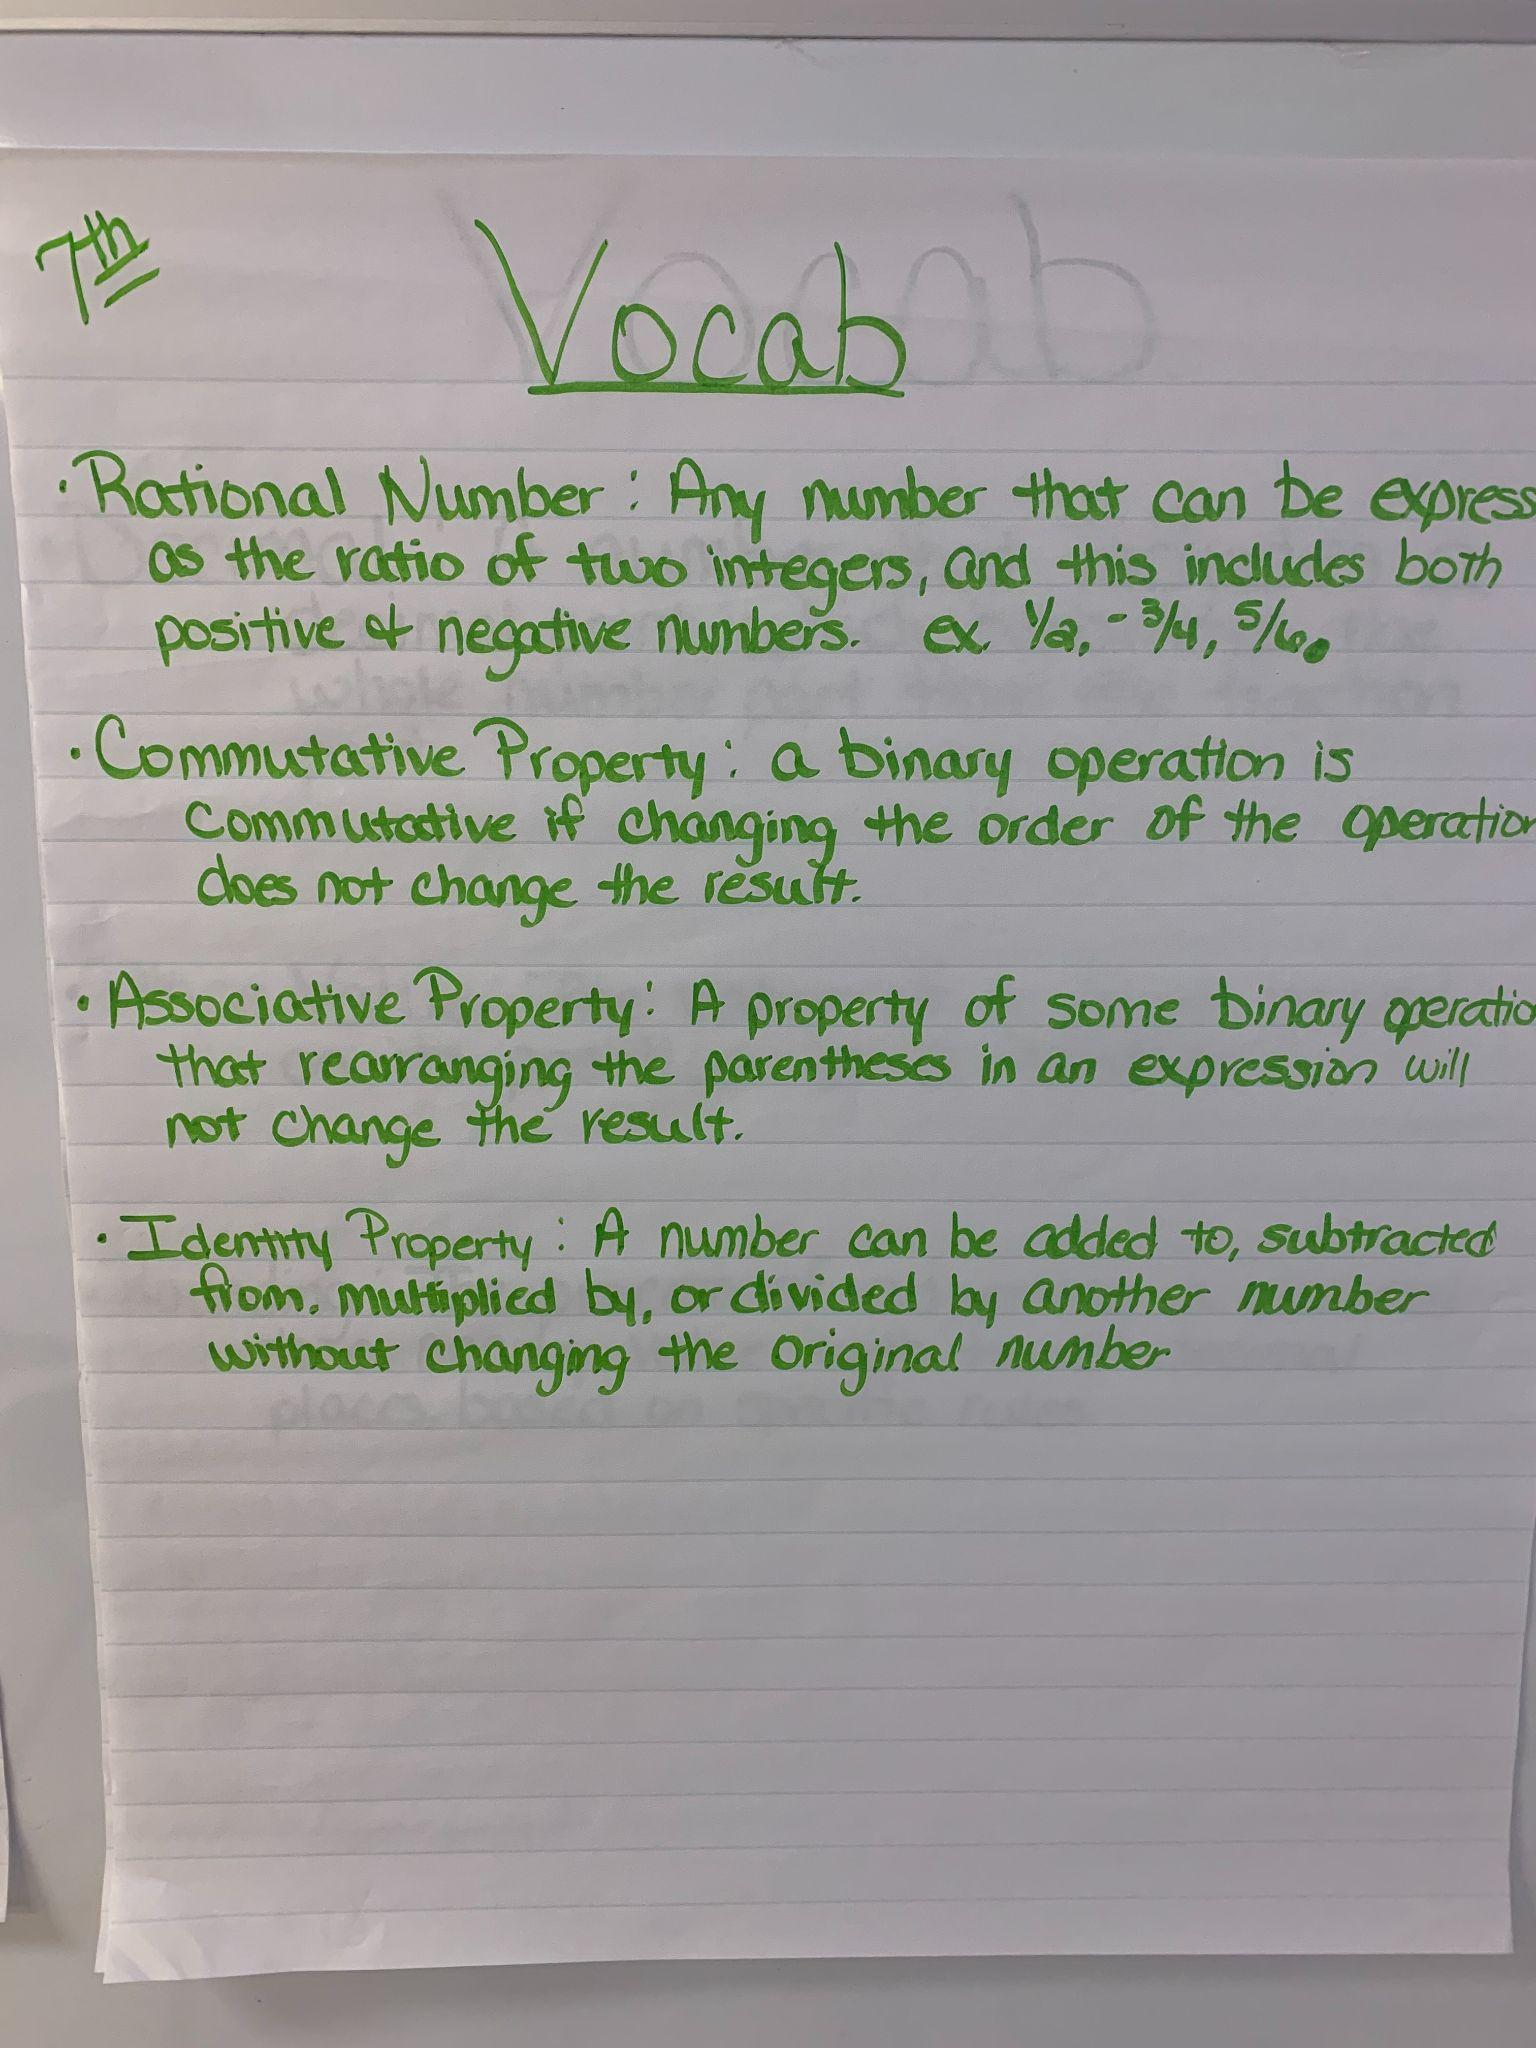 7th
Vocab
• Rational Number: Any number that can be express
as the ratio of two integers, and this includes both
positive & negative numbers. ex. 1/2, -3/4, 5/6.
• Commutative Property: a binary operation is
commutative if changing the order of the operation
does not change the result.
• Associative Property: A property of some binary operatio
that rearranging the parentheses in an expression will
not change the result.
• Identity Property: A number can be added to, subtracted
from, multiplied by, or divided by another number
without changing the original number